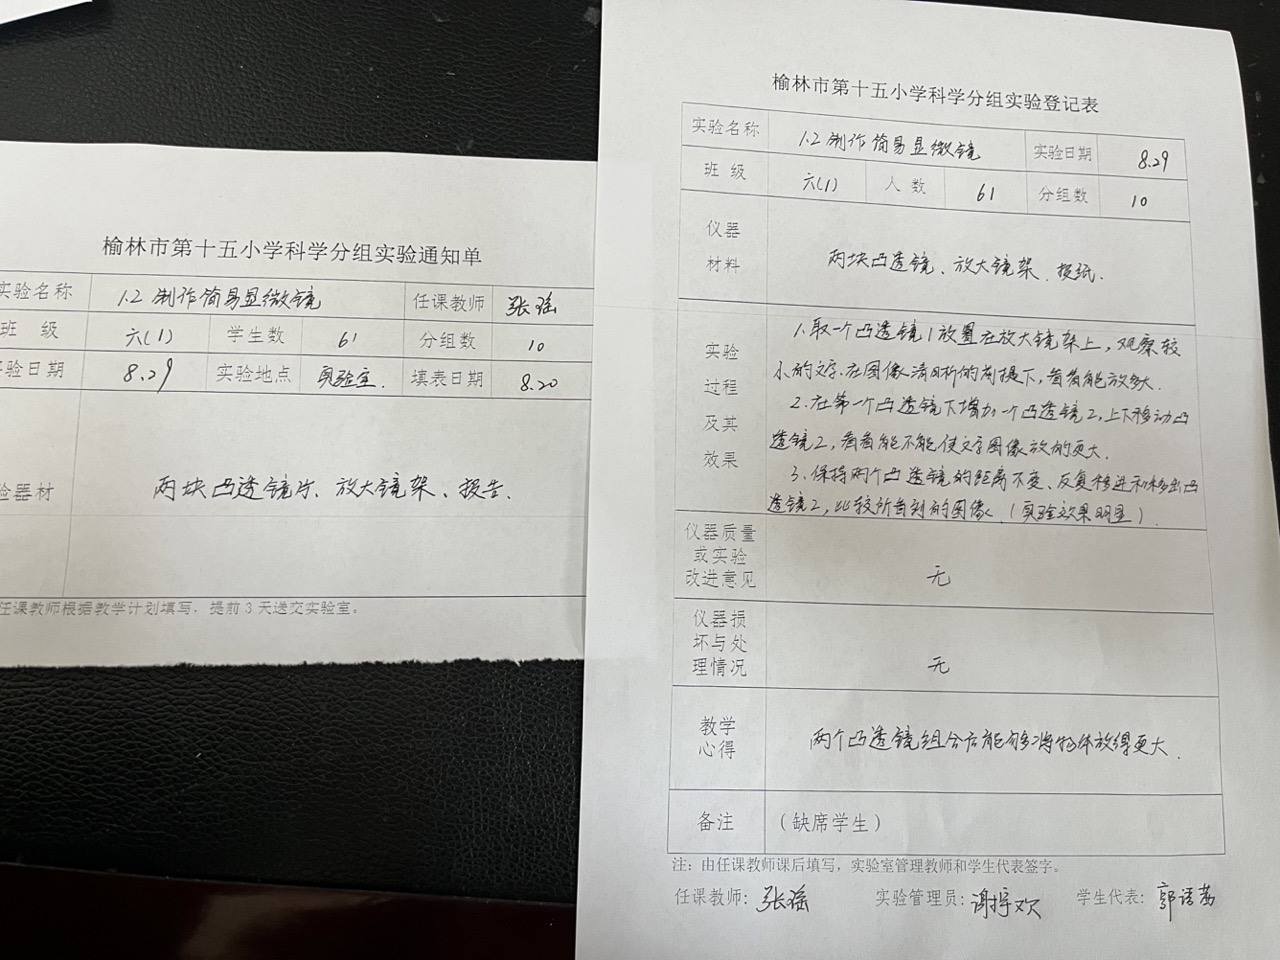 榆林市第十五小学科学分组实验通知单
实验名称 1.2 制作简易显微镜 任课教师 张瑶
班 级 六(1) 学生数 61 分组数 10
实验日期 8.29 实验地点 实验室. 填表日期 8.20
验器材 两块凸透镜片、放大镜架、报告.
任课教师根据教学计划填写,提前3天送交实验室。
榆林市第十五小学科学分组实验登记表
实验名称 1.2 制作简易显微镜 实验日期 8.29
班 级 六(1) 人 数 61 分组数 10
仪器
材料
两块凸透镜、放大镜架、报纸.
实验
过程
及其
效果
1.取一个凸透镜1放置在放大镜架上,观察较
小的文字.在图像清晰的前提下,看看能放多大.
2.在第一个凸透镜下增加一个凸透镜2,上下移动凸
透镜2,看看能不能使文字图像放的更大.
3.保持两个凸透镜的距离不变、反复移进和移出凸
透镜2,比较所看到的图像.(实验效果明显).
仪器质量
或实验
改进意见
无
仪器损
坏与处
理情况
无
教学
心得
两个凸透镜组合后能够将物体放得更大.
备注 (缺席学生)
注:由任课教师课后填写,实验室管理教师和学生代表签字。
任课教师: 张瑶 实验管理员: 谢宇欢 学生代表: 郭语茜